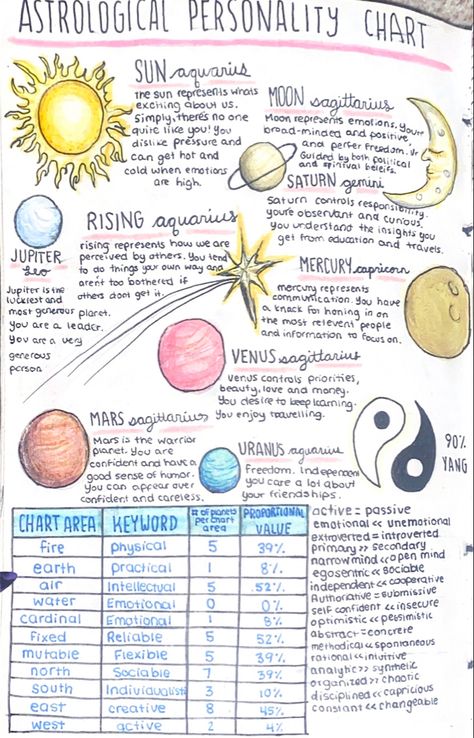 ASTROLOGICAL PERSONALITY CHART
SUN aquarius
the sun represents whats
exciting about us.
Simply, there's no one
quite like you! You
dislike pressure and
can get hot and
cold when emotions
are high.
MOON sagittarius
Moon represents emotions. You're
broad-minded and positive,
and perfer freedom. Ur
Guided by both political
and spirival beleifs.
SATURN gemini
Saturn controls responsibility.
you're observant and curious.
You understand the insights you
get from education and travels.
RISING aquarius
rising represents how we are
perceived by others. You tend
to do things your own way and
aren't too bothered if
others dont get it.
JUPITER
leo
Jupiter is the
luckiest and
most generous planet.
You are a leader.
You are a very
generous
person
MERCURY capricorn
mercury represents
communication. You have
a knack for honing in on
the most relevent people
and information to focus on.
VENUS sagittarius
venus controls priorities,
beauty, love and money.
You desire to keep learning.
You enjoy travelling.
MARS sagittarius
Mars is the warrior
planet. You are
confident and have a
good sense of humor.
You can appear over
confident and careless.
URANUS aquarius
Freedom. Independence
you care a lot about
your friendships.
90%
YANG
CHART AREA KEYWORD # of planets per chart area PROPORTIONAL VALUE
fire physical 5 39%
earth practical 1 8%
air Intellectual 5 52%
water Emotional 0 0%
cardinal Emotional 1 8%
fixed Reliable 5 52%
mutable Flexible 5 39%
north Sociable 7 39%
south Individualist 3 10%
east creative 8 45%
west active 2 4%
active = passive
emotional << unemotional
extroverted = introverted
primary >> secondary
narrow mind << open mind
egosentric << sociable
independent << cooperative
Authorative = submissive
self confident << insecure
optimistic << pessimistic
abstract = concrete
methodical << spontaneous
rational << intuitive
analytic >> synthetic
organized >> chaotic
disciplined << capricious
constant << changeable